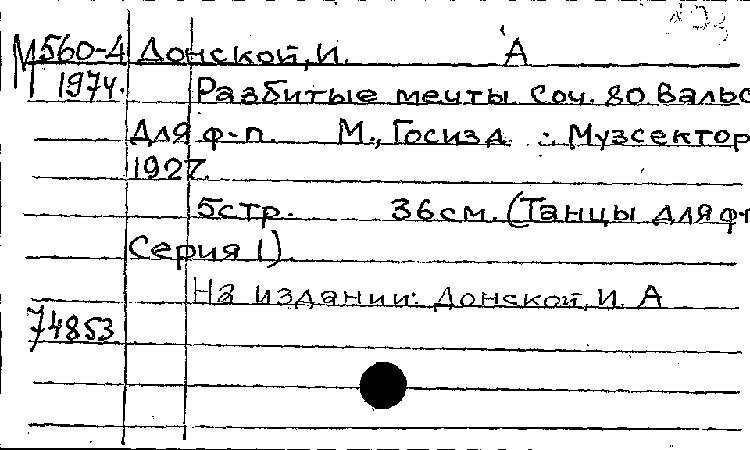 М 560-4 Донской, И. А
1974. Разбитые мечты. Соч. 80 Вальс
Для ф-п. М., Госизд. : Музсектор
1927.
5стр. 36см. (Танцы для ф-
Серия 1).
На издании: Донской, И. А
74853